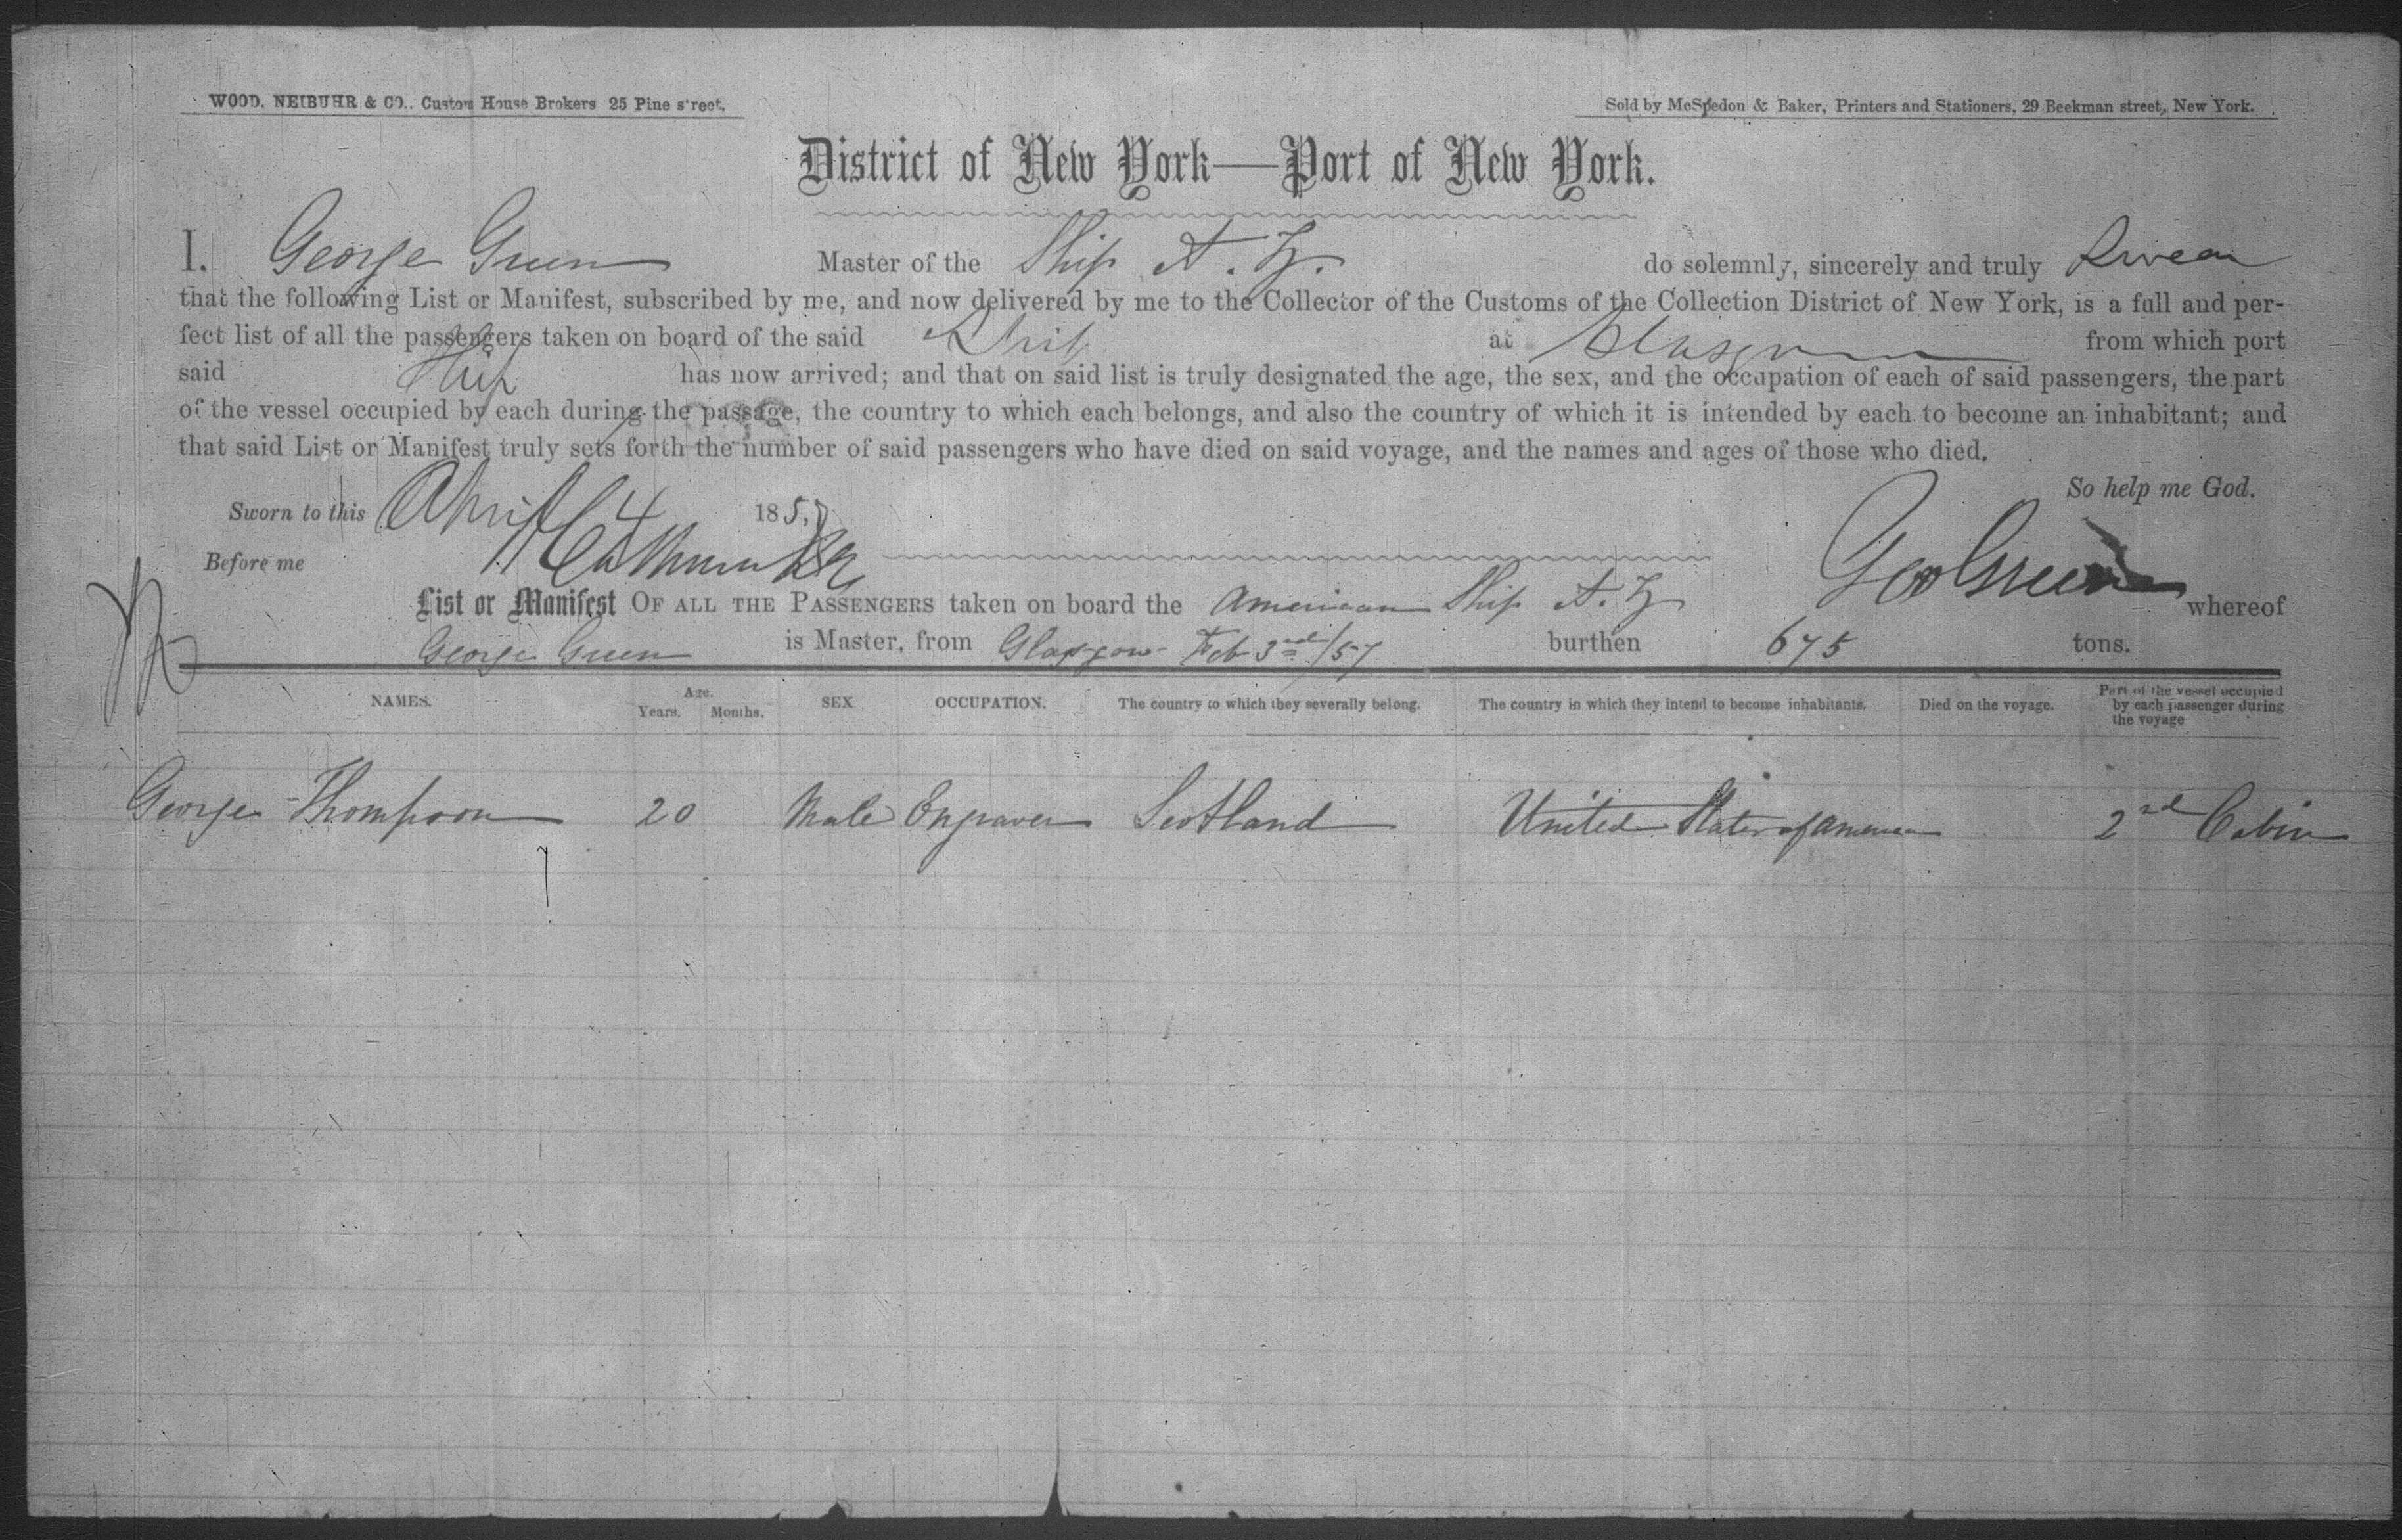 WOOD, NEIBUHR & CO., Custom House Brokers 25 Pine street.
Sold by McSpedon & Baker, Printers and Stationers, 29 Beekman street, New York.
District of New York—Port of New York.
I. George Green Master of the Ship A. Z. do solemnly, sincerely and truly Swear
that the following List or Manifest, subscribed by me, and now delivered by me to the Collector of the Customs of the Collection District of New York, is a full and per-
fect list of all the passengers taken on board of the said Ship at Glasgow from which port
said Ship has now arrived; and that on said list is truly designated the age, the sex, and the occupation of each of said passengers, the part
of the vessel occupied by each during the passage, the country to which each belongs, and also the country of which it is intended by each to become an inhabitant; and
that said List or Manifest truly sets forth the number of said passengers who have died on said voyage, and the names and ages of those who died.
So help me God.
Sworn to this April 4 1857
Before me
Geo Green
List or Manifest OF ALL THE PASSENGERS taken on board the American Ship A. Z whereof
George Green is Master, from Glasgow Feb 3rd/57 burthen 675 tons.
NAMES. Age. Years. Months. SEX OCCUPATION. The country to which they severally belong. The country in which they intend to become inhabitants. Died on the voyage. Part of the vessel occupied by each passenger during the voyage
George Thompson 20 Male Engraver Scotland United States of America 2nd Cabin